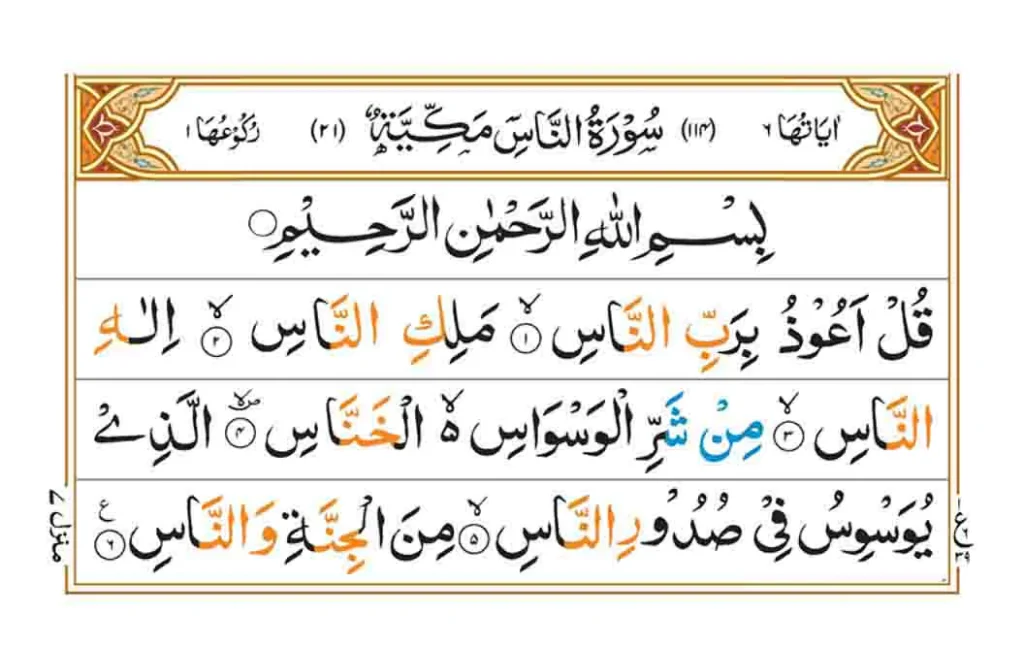 اٰيَاتُهَا ٦ (١١٤) سُوْرَةُ النَّاسِ مَكِّيَّةٌ (٢١) رُكُوْعُهَا ١
بِسْمِ اللّٰهِ الرَّحْمٰنِ الرَّحِيْمِ ۝
قُلْ اَعُوْذُ بِرَبِّ النَّاسِ ۙ﴿١﴾ مَلِكِ النَّاسِ ۙ﴿٢﴾ اِلٰهِ
النَّاسِ ۙ﴿٣﴾ مِنْ شَرِّ الْوَسْوَاسِ ۵ۙ الْخَنَّاسِ ۪ۙ﴿٤﴾ الَّذِيْ
يُوَسْوِسُ فِيْ صُدُوْرِ النَّاسِ ۙ﴿٥﴾ مِنَ الْجِنَّةِ وَالنَّاسِ ﴿٦﴾ ع
منزل ٧
ع
٣٩